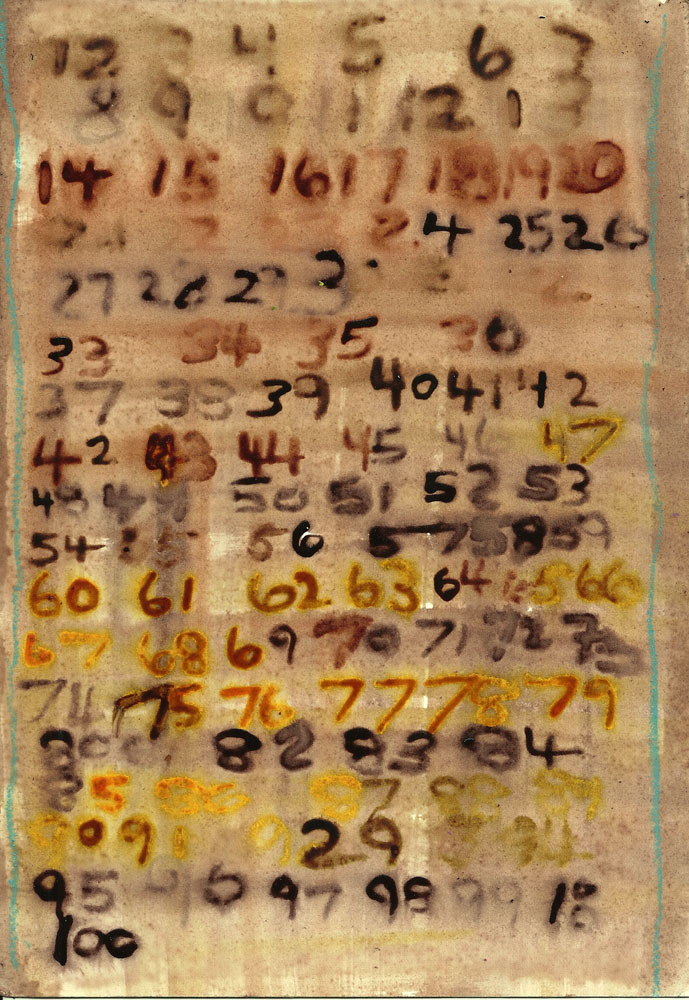 12 3 4 5 6 7
8 9 10 11 12 13
14 15 16 17 18 19 20
24 25 26
27 28 29
33 34 35 36
37 38 39 40 41 42
42 43 44 45 46 47
48 49 50 51 52 53
54 55 56 57 58 59
60 61 62 63 64 65 66
67 68 69 70 71 72 73
74 75 76 77 78 79
82 83 84
85 86 87 88 89
90 91 92 9 94
95 96 97 98 99 10
100